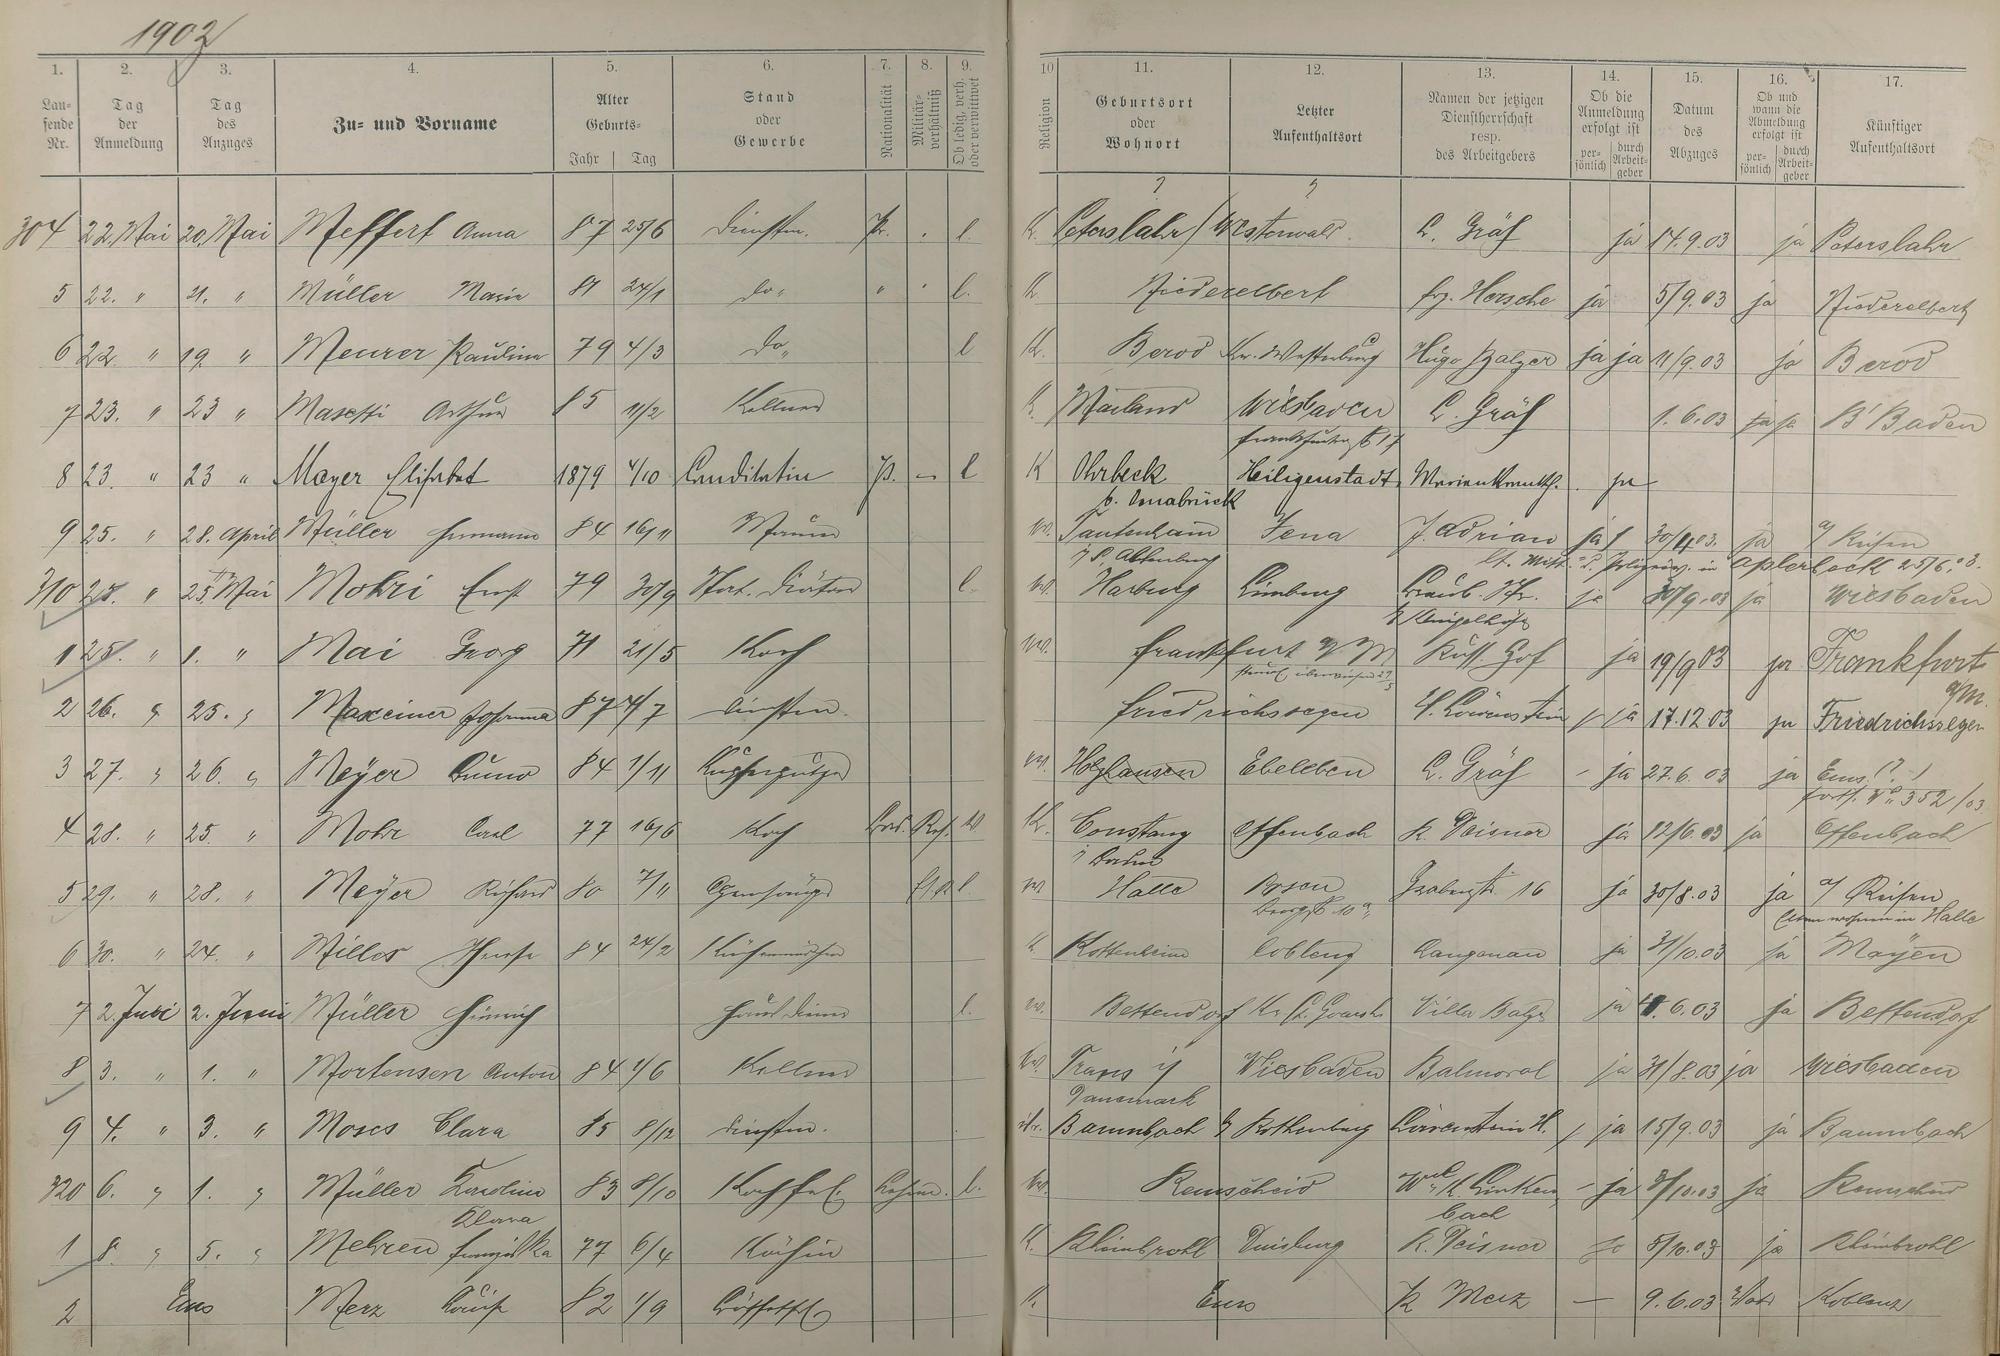 1903
1. 2. 3. 4. 5. 6. 7. 8. 9. 10 11. 12. 13. 14. 15. 16. 17.
Lau-
fende
Nr.
Tag
der
Anmeldung
Tag
des
Anzuges
Zu- und Vorname
Alter
Geburts-
Jahr Tag
Stand
oder
Gewerbe
Nationalität
Militär-
verhältniß
Ob ledig, verh.
oder verwittwet
Religion
Geburtsort
oder
Wohnort
Letzter
Aufenthaltsort
Namen der jetzigen
Dienstherrschaft
resp.
des Arbeitgebers
Ob die
Anmeldung
erfolgt ist
per-
sönlich
durch
Arbeit-
geber
Datum
des
Abzuges
Ob und
wann die
Abmeldung
erfolgt ist
per-
sönlich
durch
Arbeit-
geber
Künftiger
Aufenthaltsort
304 22. Mai 20. Mai Meffert Anna 87 25/6 Dienstm. Pr. . l. K. Peterslahr / Westerwald. L. Gräf ja 14.9.03 ja Peterslahr
5 22. " 21. " Müller Maria 81 24/1 do. " . l. K. Niederelbert Hersche ja 5/9.03 ja Niederelbert
6 22. " 19. " Meurer Paulina 79 4/3 do. l K. Berod Kr. Westerburg Hugo Balzer ja ja 11/9.03 ja Berod
7 23. " 23 " Masetti Arthur 85 11/2 Kellner K. Mailand Wiesbaden L. Gräf 1.6.03 ja B'Baden
Frankfurter Str 17
8 23. " 23 " Mayer Elisabet 1879 4/10 Canditatin P. — l K Ohrbeck Heiligenstadt Marienkrankh. ja
b. Osnabrück
9 25. " 28. April Müller Hermann 84 16/11 Maurer Tautenhain Jena J. Adrian ja 30/4 03. ja a/ Reisen
S. Altenburg in Aplerbeck 25/6.03.
310 25. " 25. Mai Mohri Ernst 79 30/9 Diätar l. Harburg Limburg ja 30/9.03 ja Wiesbaden
1 25. " 1. " Mai Georg 71 21/5 Koch Frankfurt a/M Russ. Hof ja 19/9 03 ja Frankfurt
a/M.
2 26. " 25. " Maxeiner Johanna 87 4/7 Dienstm. Friedrichssegen H. Löwenstein ja 17.12 03 ja Friedrichssegen
3 27. " 26. " Meyer Bruno 84 1/11 Kupferputzer Holzhausen Ebeleben L. Gräf - ja 27.6.03 ja Ems (?)
352/03
4 28. " 25 " Mohr Carl 77 16/6 Koch Bad. Res. K. Constanz Offenbach K. Deisner ja 12/6.03 ja Offenbach
i/ Baden
5 29. " 28. " Meyer Richard 80 7/11 Opernsänger l. Halle Posen Grabenstr 16 ja 30/8.03 ja a/ Reisen
Eltern wohnen in Halle
6 30. " 24. " Milles Therese 84 24/2 Küchenmädchen K Kottenheim Coblenz Langenau ja 31/10.03 ja Mayen
7 2. Juni 2. Juni Müller Heinrich Hausdiener l. Bettendorf Kr. St. Goarsh. Villa Balzer ja 6.03 ja Bettendorf
8 3. " 1. " Mortensen Anton 84 1/6 Kellner Wiesbaden Balmoral ja 31/8.03 ja Wiesbaden
Danemark
9 4. " 3. " Moses Clara 85 8/12 Dienstm. isr. Baumbach b/ Rothenburg Löwenstein H. ja 15/9.03 ja Baumbach
320 6. " 1. " Müller Karoline 83 8/10 Kochfrl. l. Remscheid ja 3/10.03 ja Remscheid
Klara bach
1 8. " 5. " Mehren Franziska 77 6/4 Köchin K. Rheinbrohl Duisburg K. Deisner ja 5/10.03 ja Rheinbrohl
2 Ems Merz Louise 82 1/9 K. Ems K Merz — 9.6.03 Koblenz